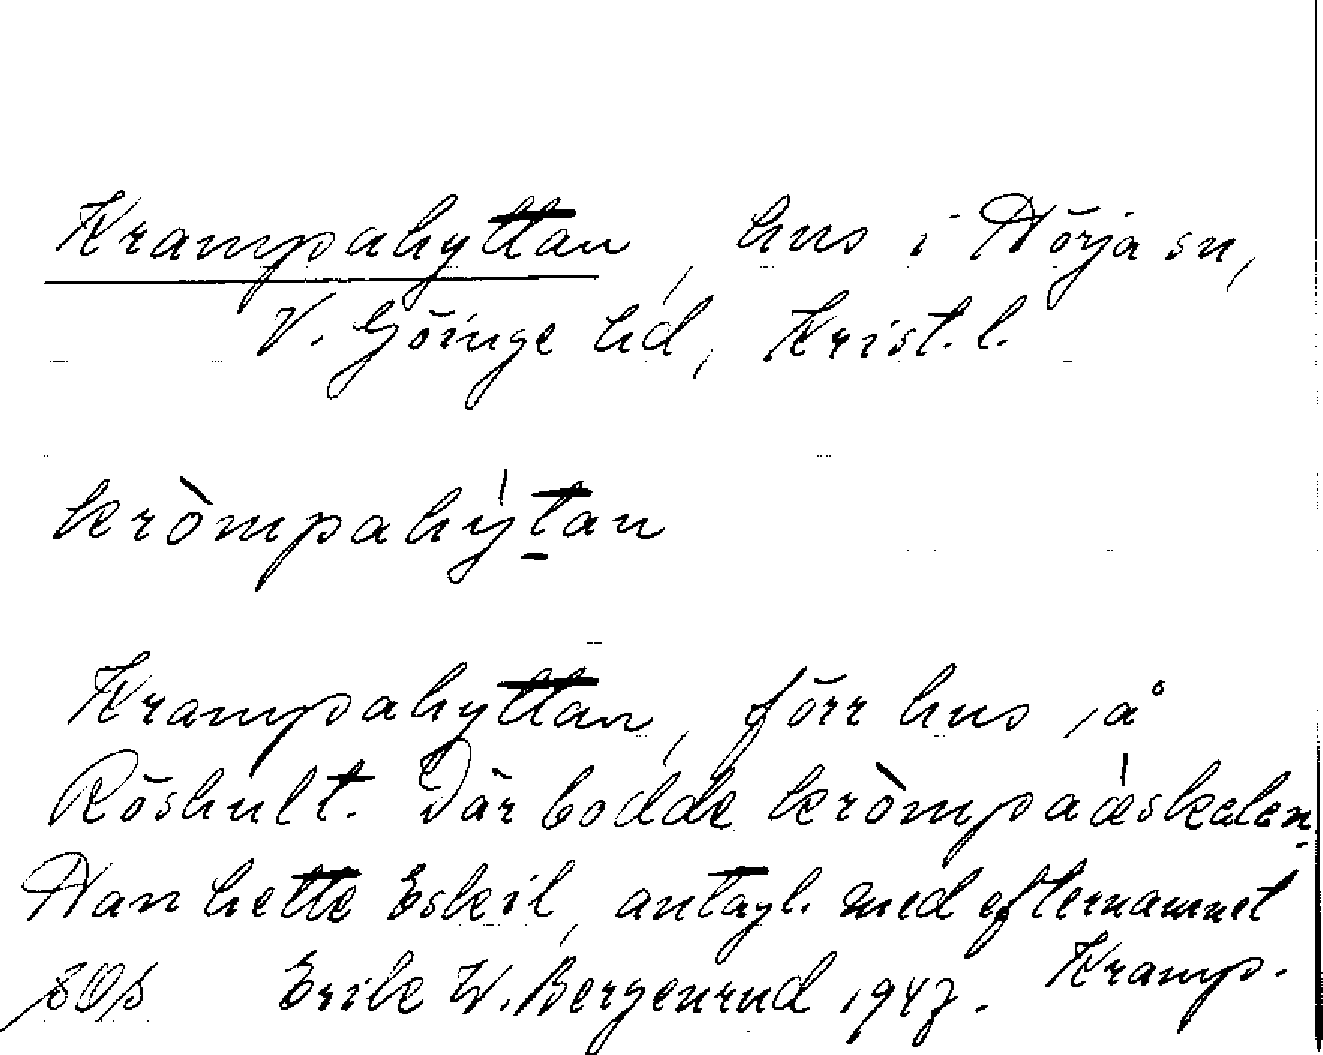 Krampahyttan, hus i Hörja sn,
V. Göinge hd, Krist. l.
kròmpahýtan
Krampahyttan, förr hus på
Röshult. Där bodde kròmpaǽskelen.
Han hette Eskil, antagl. med efternamnet
Kramp.
Erik W. Bergenrud 1947.